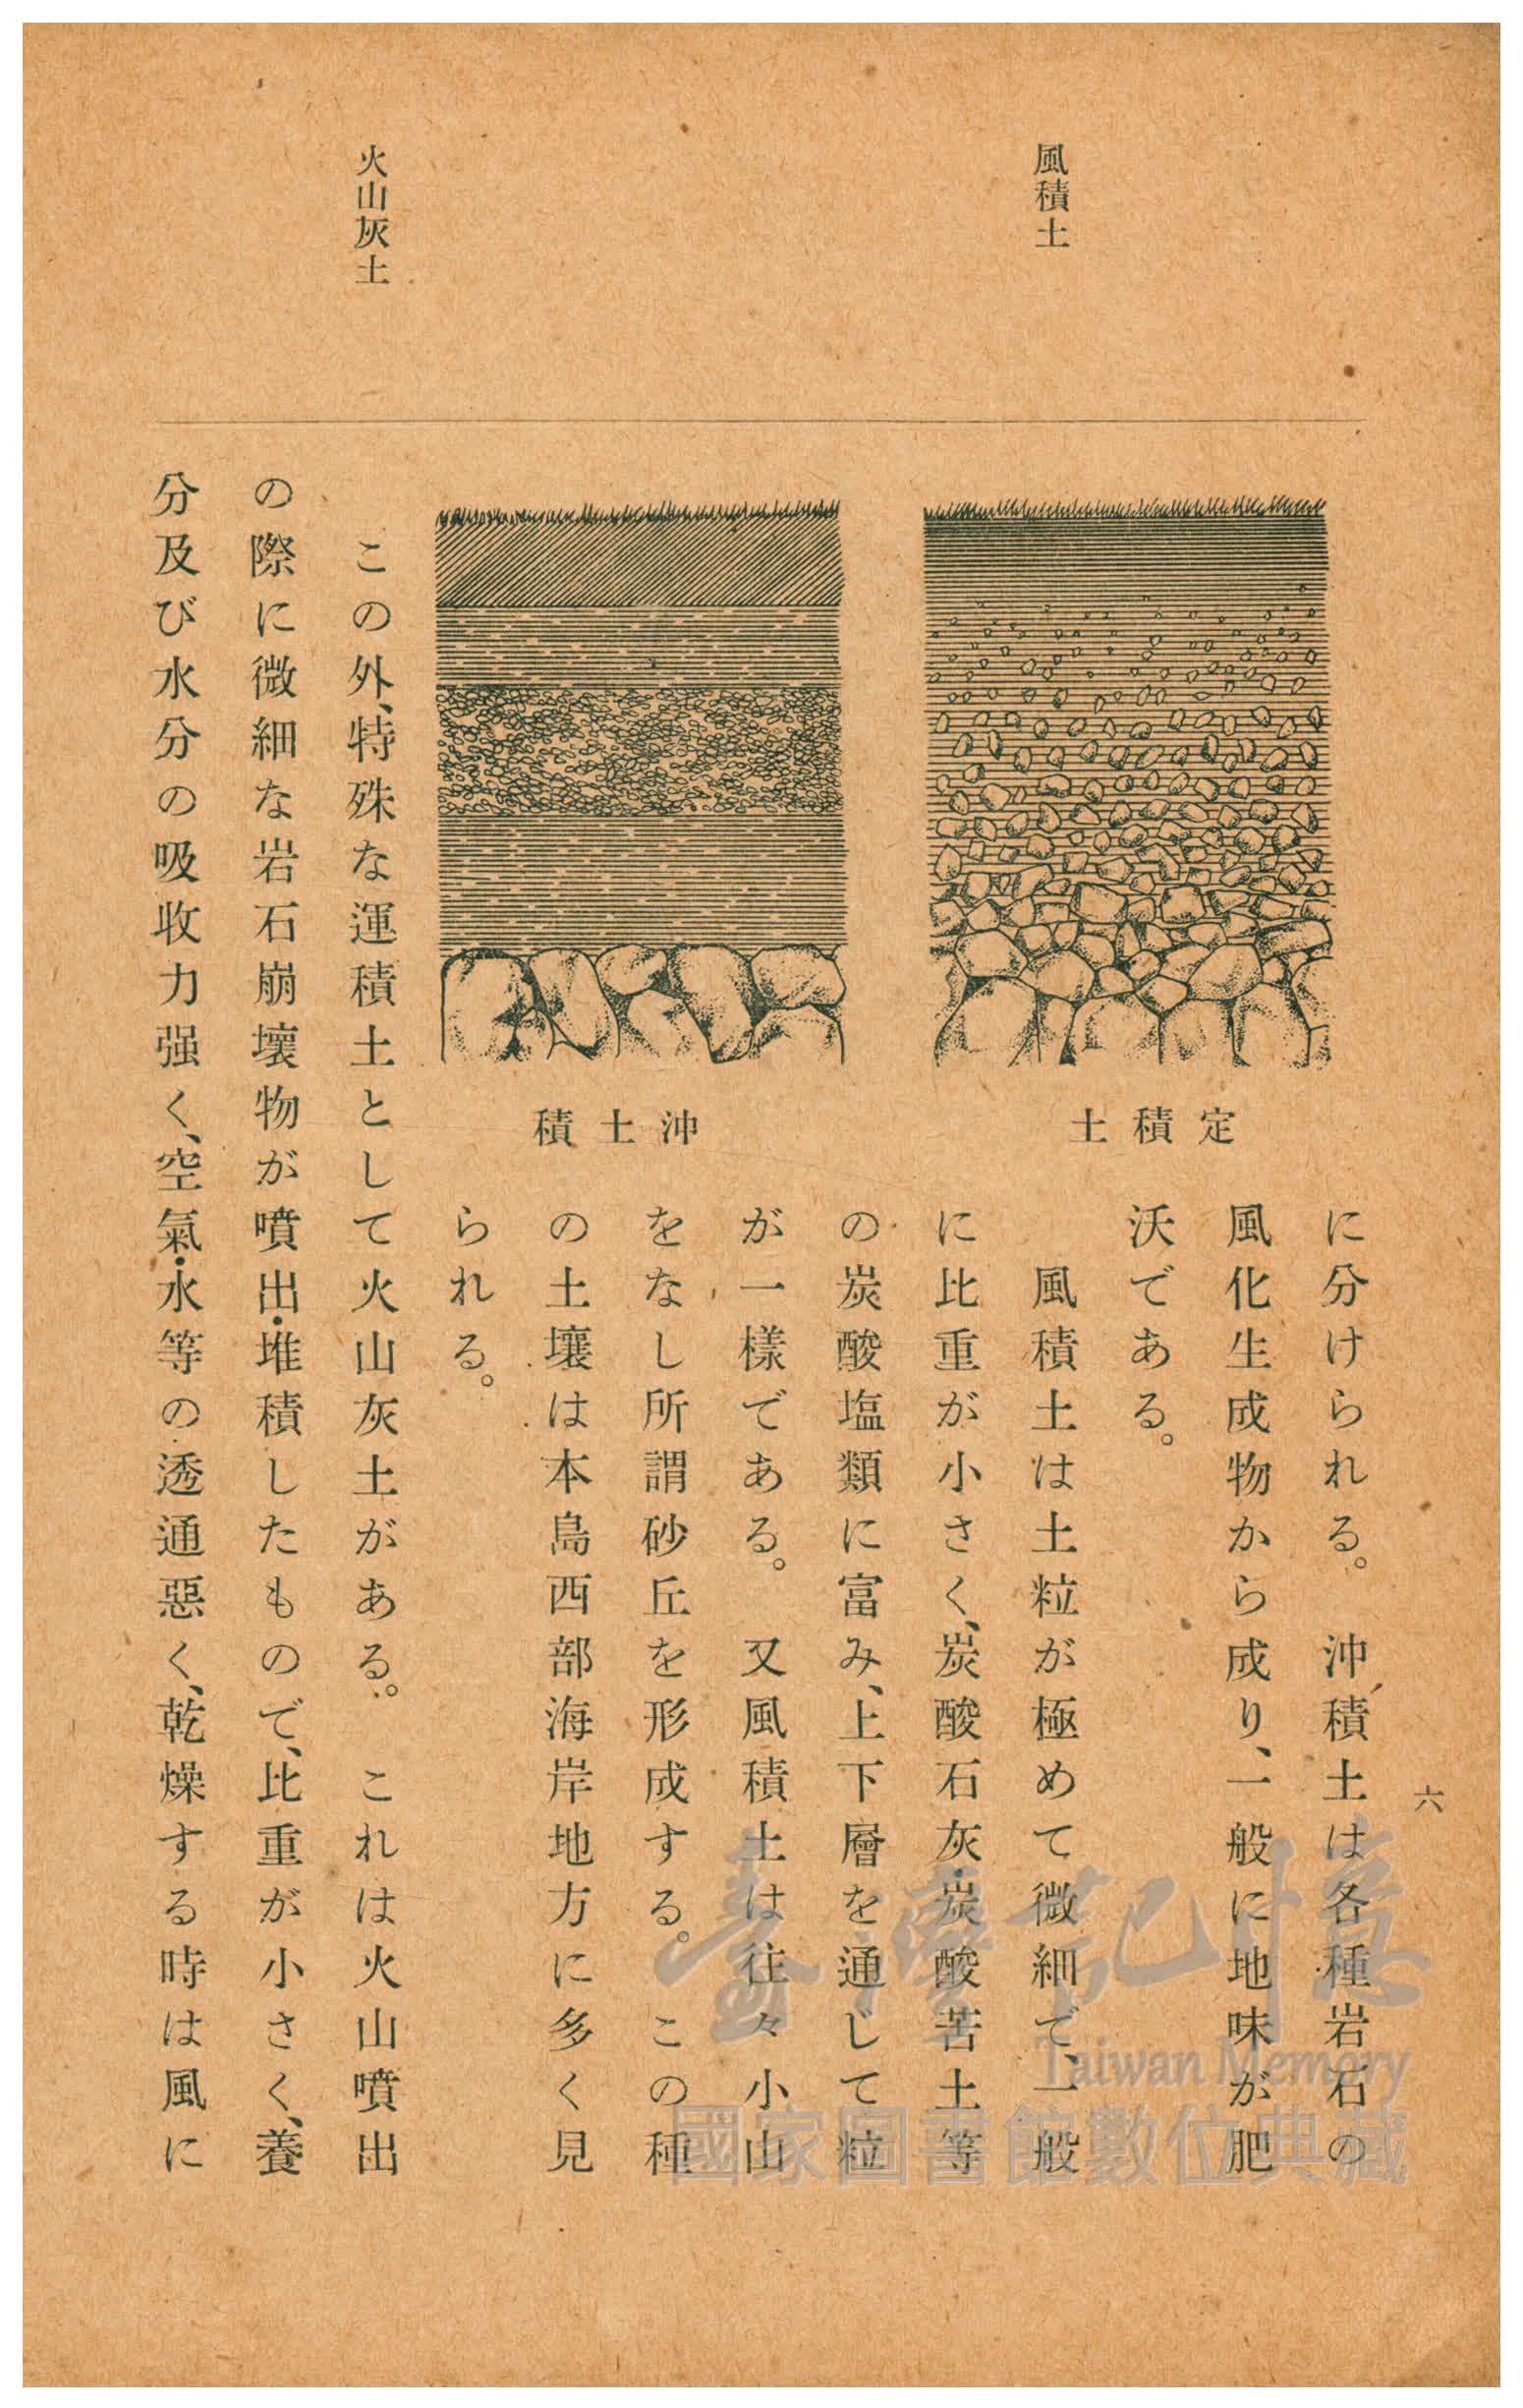 六
風積土
火山灰土
定積土
沖土積
に分けられる。　沖積土は各種岩石の
風化生成物から成り、一般に地味が肥
沃である。
風積土は土粒が極めて微細で、一般
に比重が小さく、炭酸石灰・炭酸苦土等
の炭酸塩類に富み、上下層を通じて粒
が一樣である。　又風積土は往々小山
をなし所謂砂丘を形成する。　この種
の土壤は本島西部海岸地方に多く見
られる。
この外、特殊な運積土として火山灰土がある。　これは火山噴出
の際に微細な岩石崩壞物が噴出・堆積したもので、比重が小さく、養
分及び水分の吸收力强く、空氣・水等の透通惡く、乾燥する時は風に
臺灣記憶
Taiwan Memory
國家圖書館數位典藏